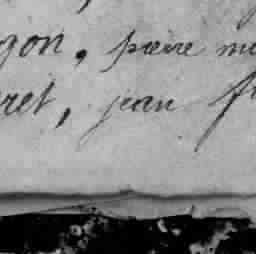 gon, pierre m
ret, jean f